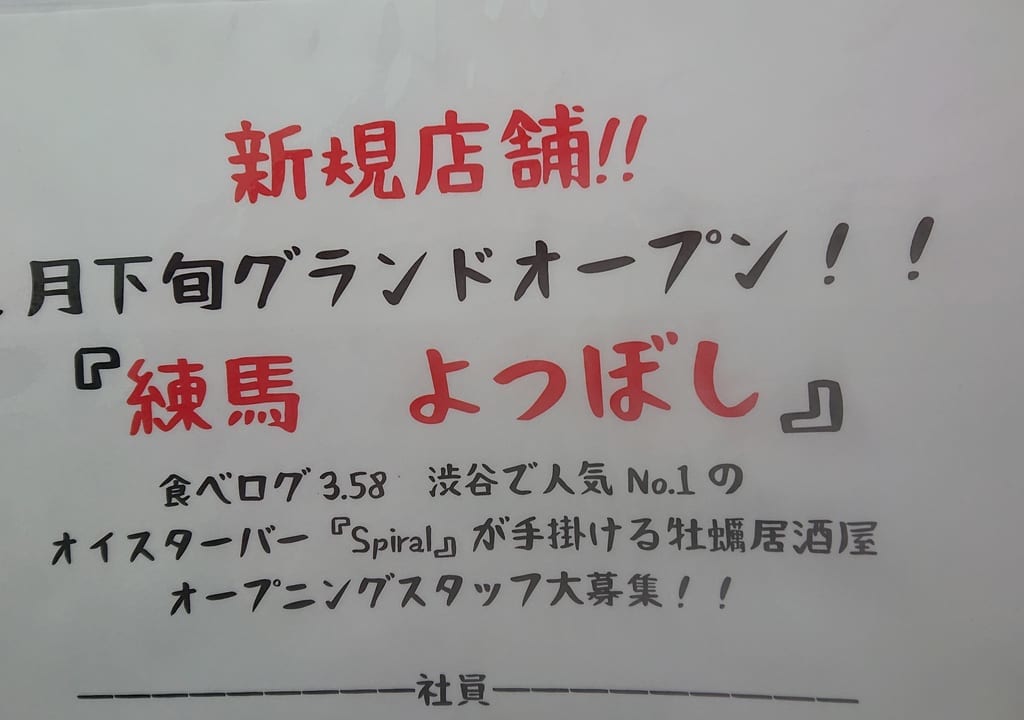 新規店舗!!
月下旬グランドオープン！！
『練馬　よつぼし』
食べログ 3.58　渋谷で人気 No.1 の
オイスターバー『Spiral』が手掛ける牡蠣居酒屋
オープニングスタッフ大募集！！
―――――社員―――――